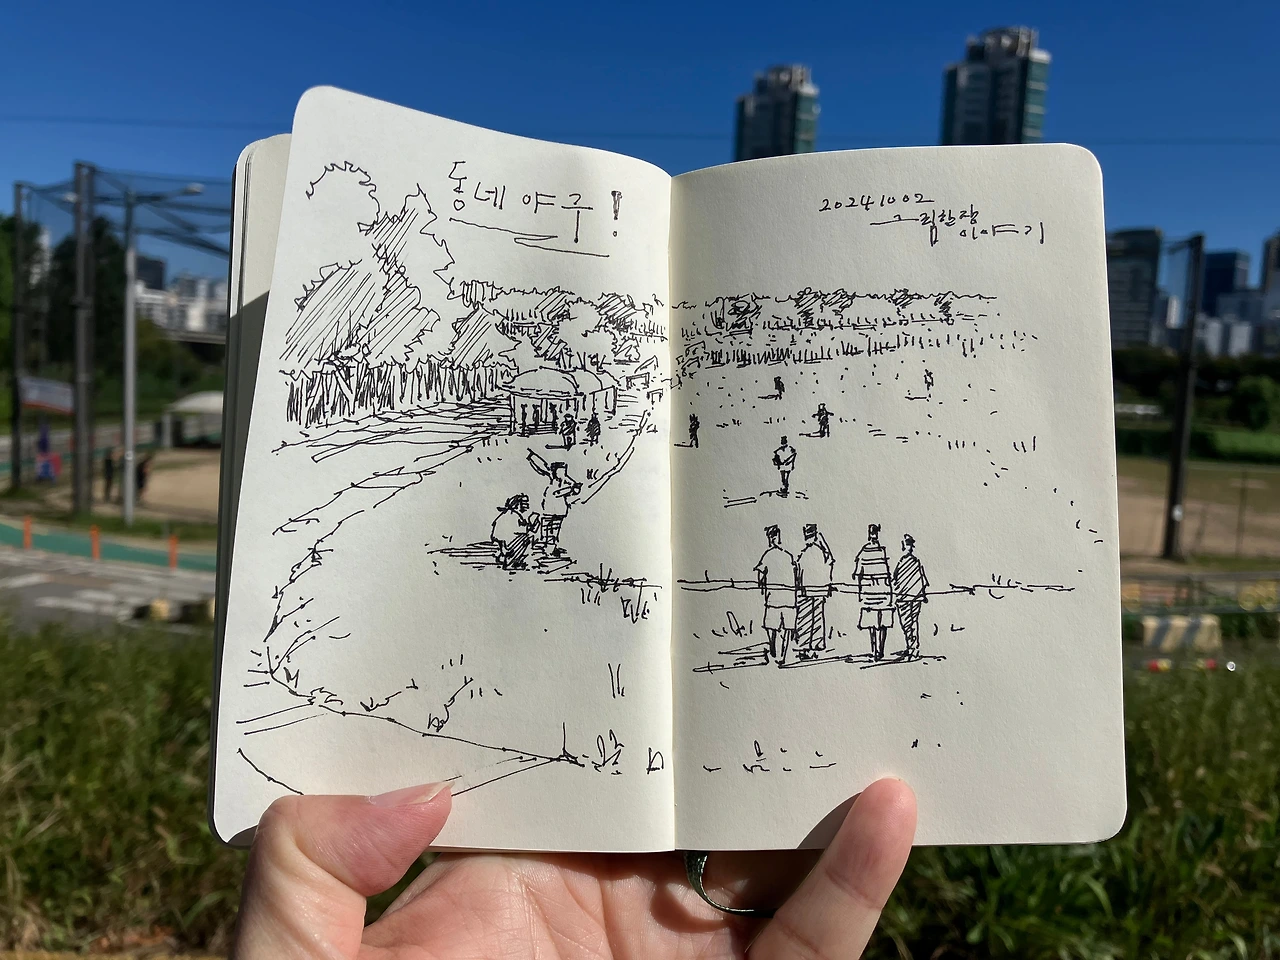 동네 야구!
20241002
그림한장
이야기